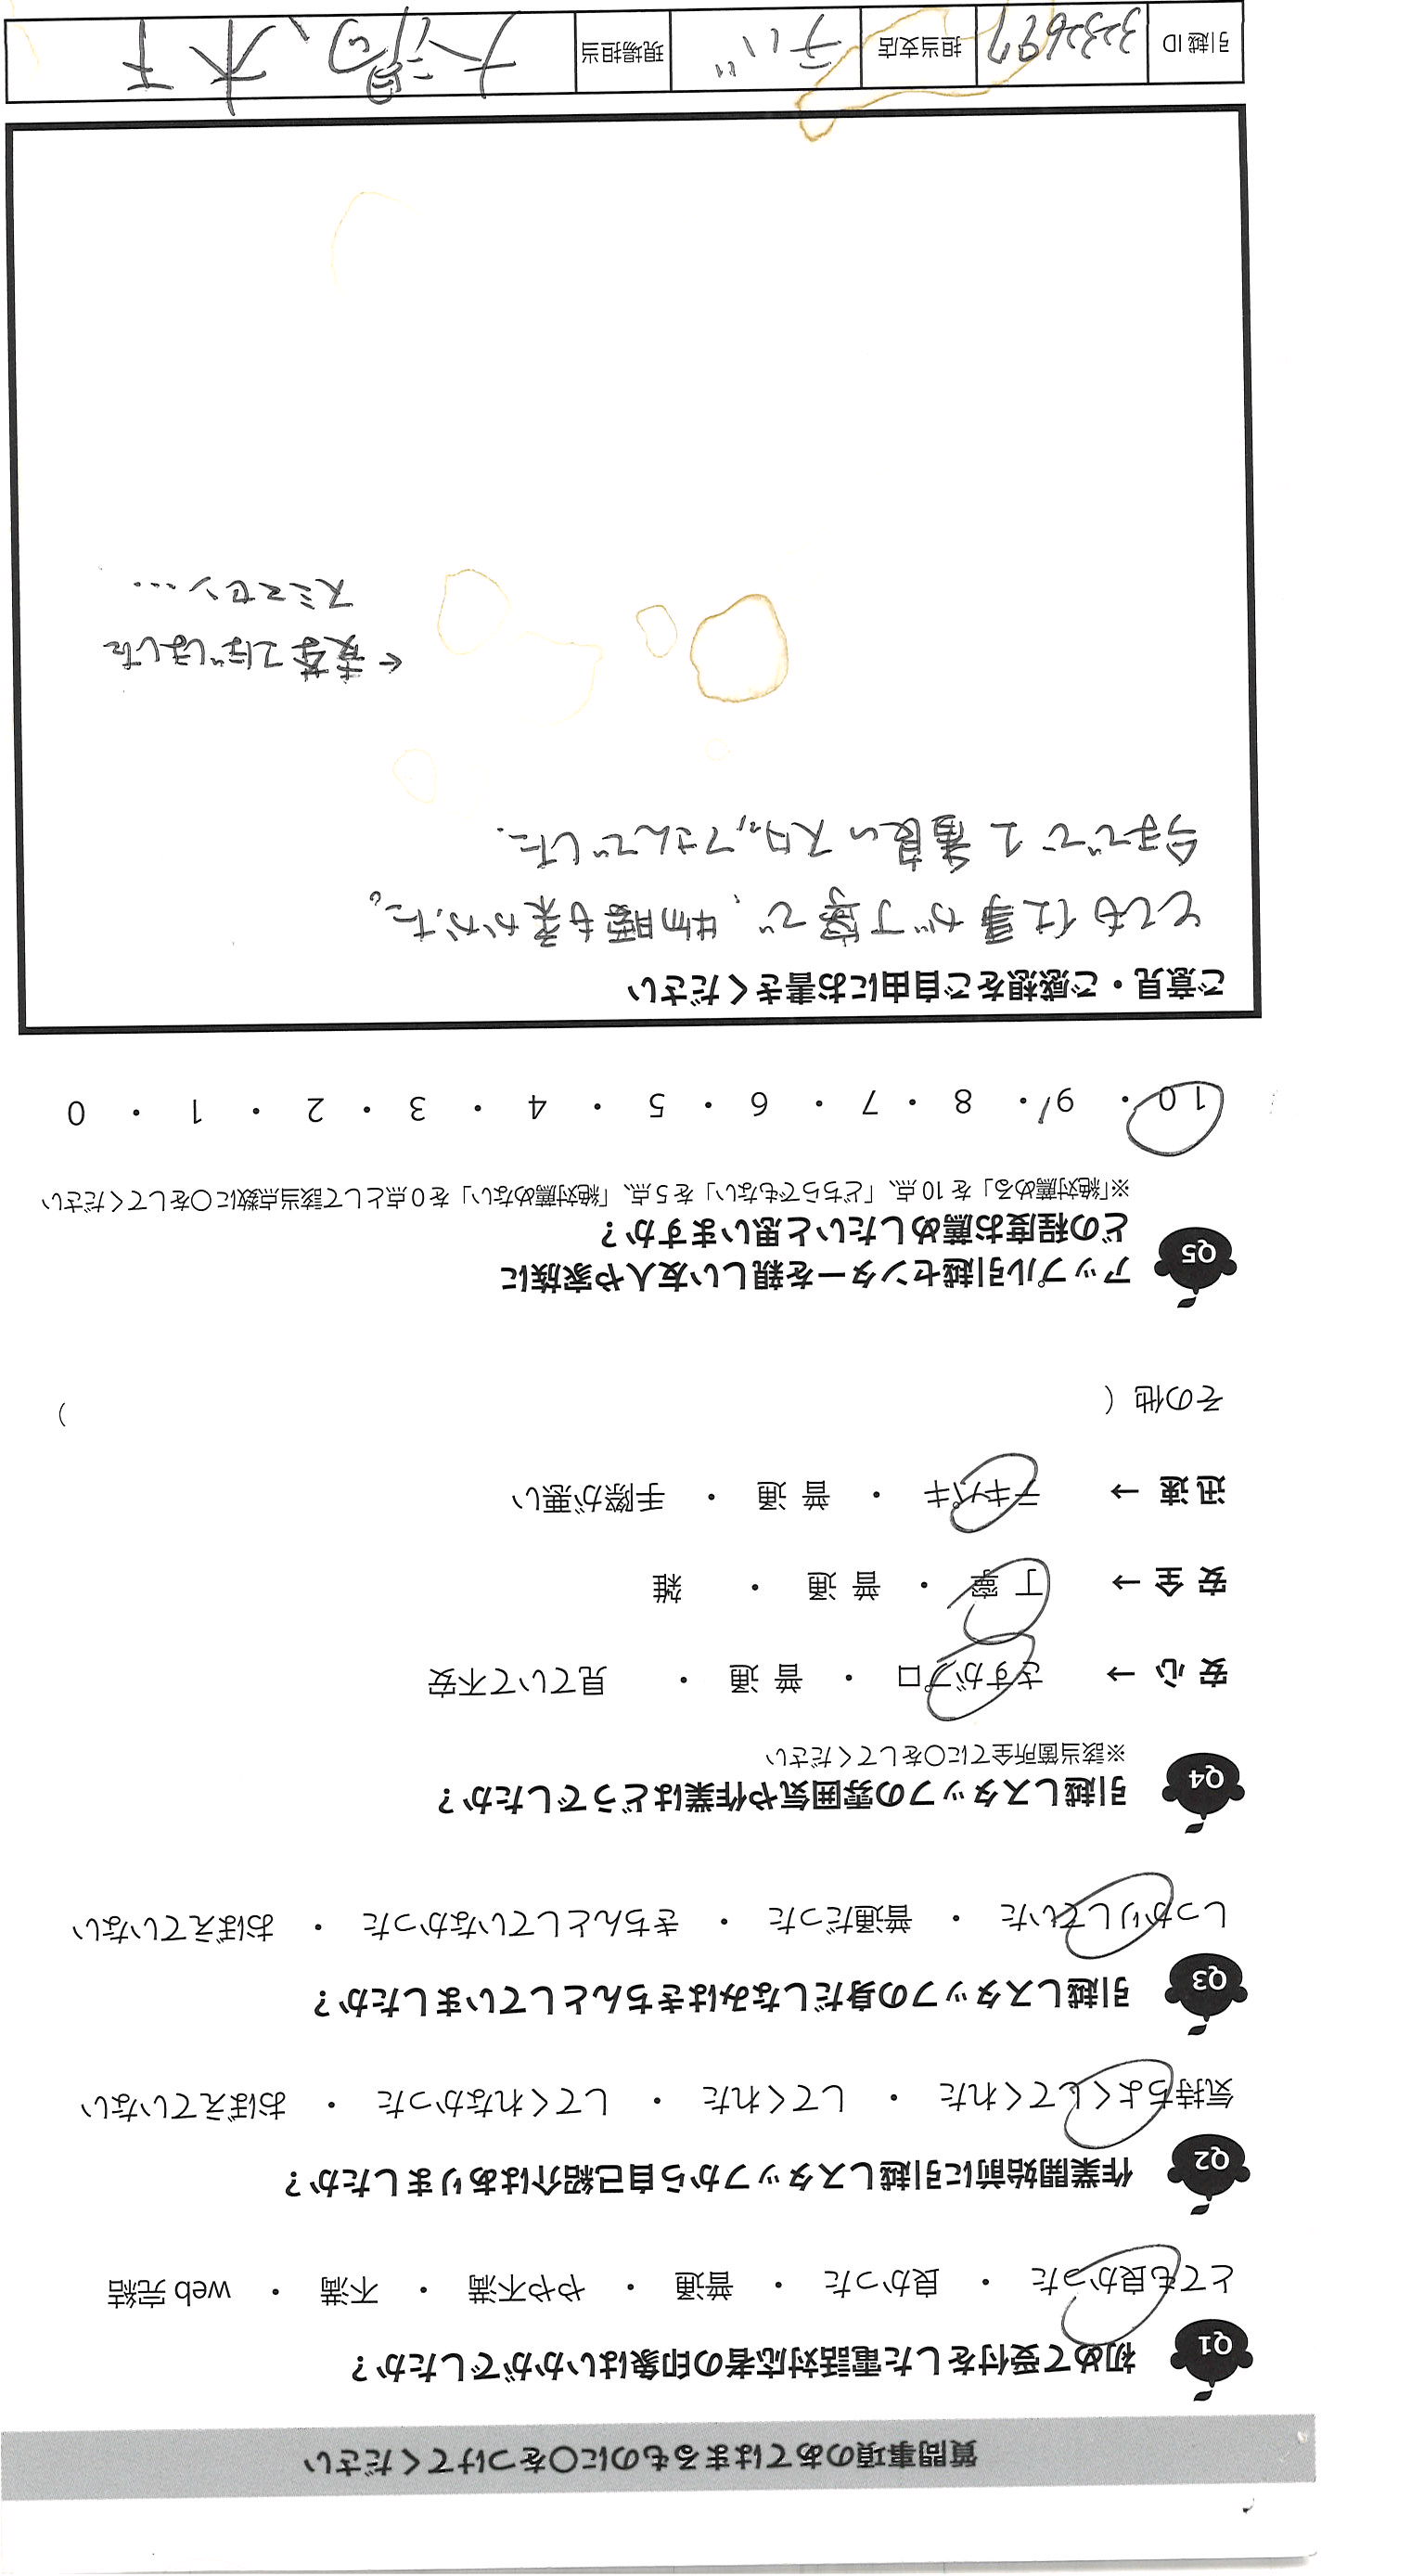 質問事項のあてはまるものに○をつけてください
Q1 初めて受付をした電話対応者の印象はいかがでしたか？
とても良かった ・ 良かった ・ 普通 ・ やや不満 ・ 不満 ・ web 完結
Q2 作業開始前に引越しスタッフから自己紹介はありましたか？
気持ちよくしてくれた ・ してくれた ・ してくれなかった ・ おぼえていない
Q3 引越しスタッフの身だしなみはきちんとしていましたか？
しっかりしていた ・ 普通だった ・ きちんとしていなかった ・ おぼえていない
Q4 引越しスタッフの雰囲気や作業はどうでしたか？
※該当箇所全てに○をしてください
安 心 → さすがプロ ・ 普 通 ・ 見ていて不安
安 全 → 丁 寧 ・ 普 通 ・ 雑
迅 速 → テキパキ ・ 普 通 ・ 手際が悪い
その他（ ）
Q5 アップル引越センターを親しい友人や家族に
どの程度お薦めしたいと思いますか？
※「絶対薦める」を 10 点、「どちらでもない」を 5 点、「絶対薦めない」を 0 点として該当点数に○をしてください
10 ・ 9 ・ 8 ・ 7 ・ 6 ・ 5 ・ 4 ・ 3 ・ 2 ・ 1 ・ 0
ご意見・ご感想をご自由にお書きください
とても仕事が丁寧で、物腰も柔かかった。
今までで1番良いスタッフさんでした.
← 麦茶こぼしました
スミマセン…
引越 ID 3232697 担当支店 現場担当 木下